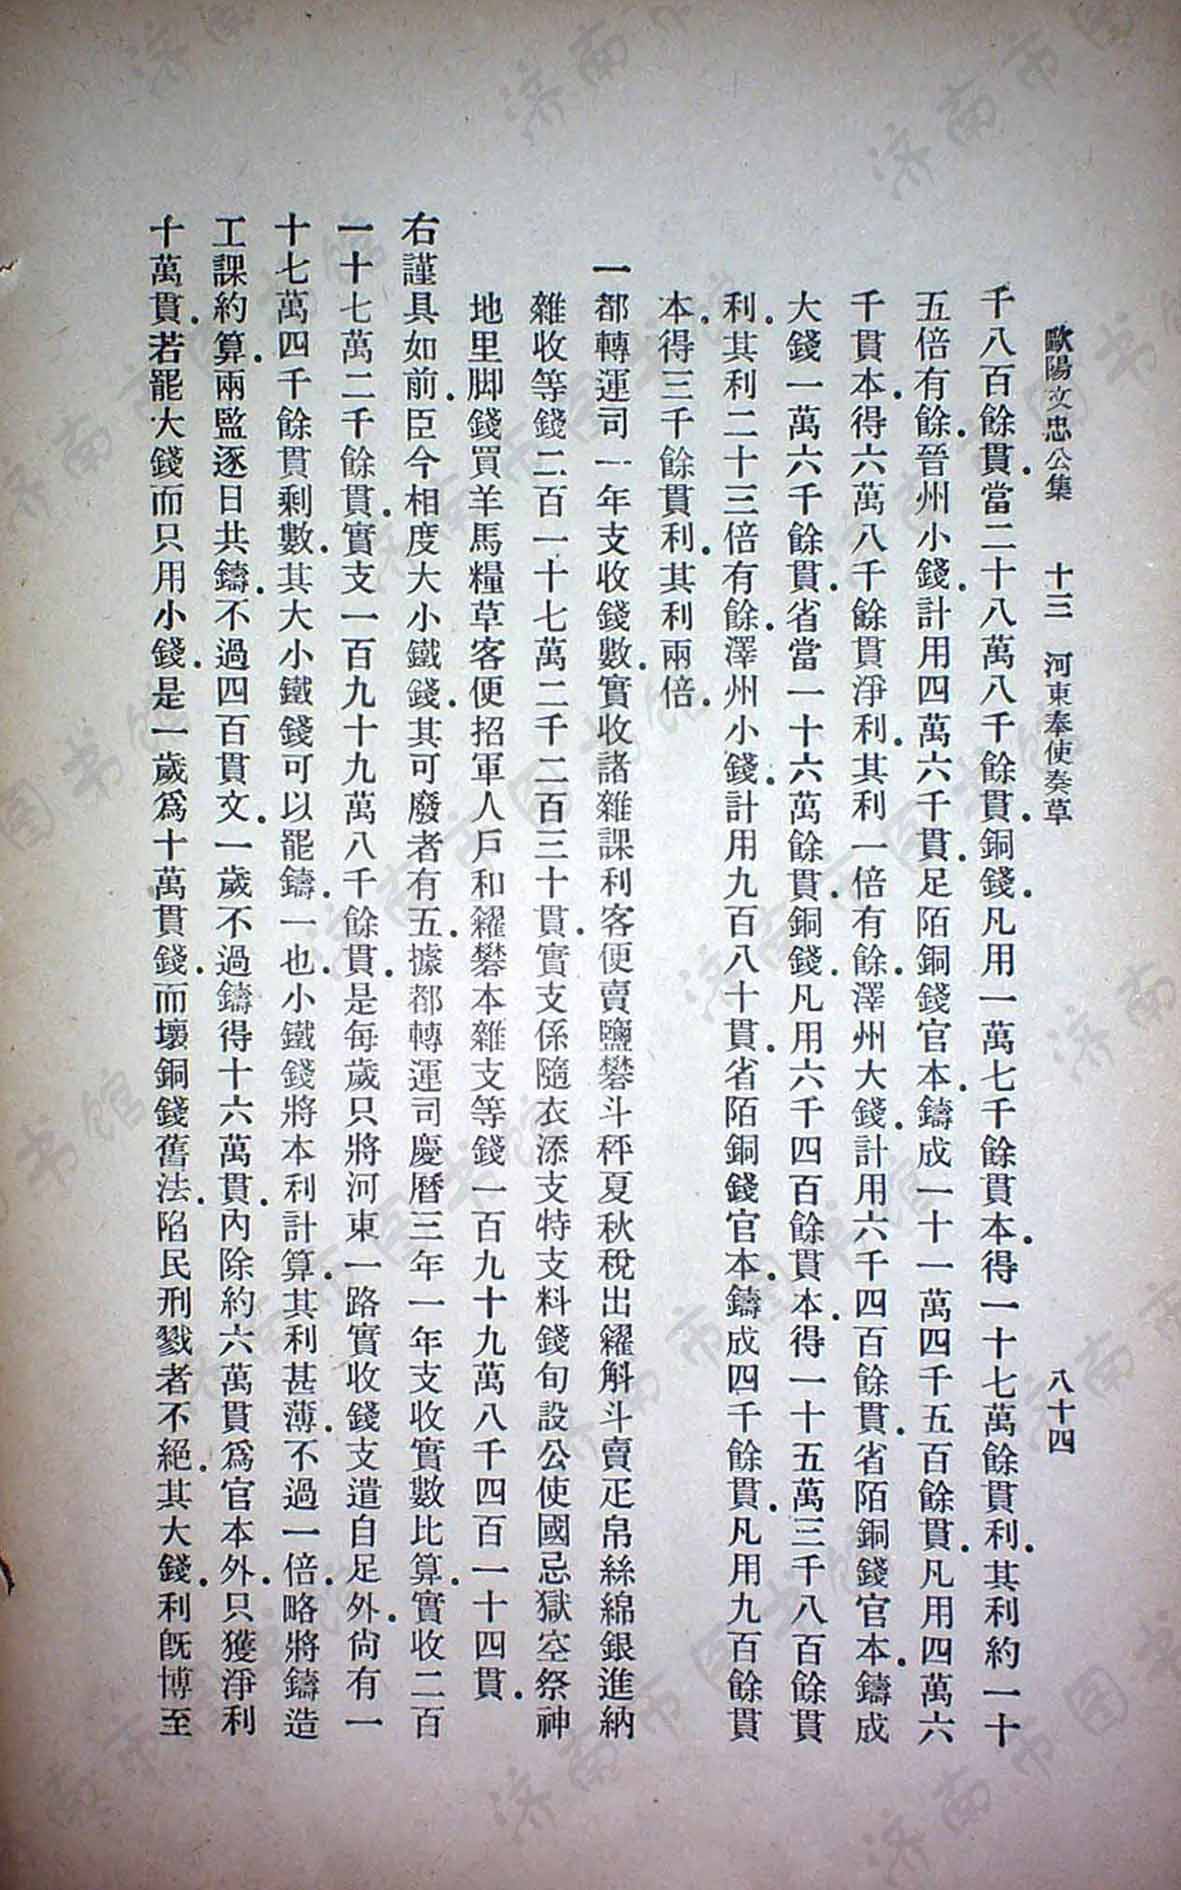 歐陽文忠公集　十三　河東奉使奏草　八十四
千八百餘貫．當二十八萬八千餘貫．銅錢．凡用一萬七千餘貫本．得一十七萬餘貫利．其利約一十
五倍有餘．晉州小錢．計用四萬六千貫．足陌銅錢官本．鑄成一十一萬四千五百餘貫．凡用四萬六
千貫本．得六萬八千餘貫淨利．其利一倍有餘．澤州大錢．計用六千四百餘貫．省陌銅錢官本．鑄成
大錢一萬六千餘貫．省當一十六萬餘貫．銅錢．凡用六千四百餘貫本．得一十五萬三千八百餘貫
利．其利二十三倍有餘．澤州小錢．計用九百八十貫．省陌銅錢官本．鑄成四千餘貫．凡用九百餘貫
本．得三千餘貫利．其利兩倍．
一都轉運司一年支收錢數．實收諸雜課利客便賣鹽礬斗秤夏秋稅出糴斛斗賣疋帛絲綿銀進納
雜收等錢二百一十七萬二千二百三十貫．實支係隨衣添支特支料錢旬設公使國忌獄空祭神
地里脚錢買羊馬糧草客便招軍人戶和糴礬本雜支等錢一百九十九萬八千四百一十四貫．
右謹具如前．臣今相度大小鐵錢．其可廢者有五．據都轉運司慶曆三年一年支收實數比算．實收二百
一十七萬二千餘貫．實支一百九十九萬八千餘貫．是每歲只將河東一路實收錢支遣自足外．尙有一
十七萬四千餘貫剩數．其大小鐵錢可以罷鑄．一也．小鐵錢將本利計算．其利甚薄．不過一倍．略將鑄造
工課約算．兩監逐日共鑄．不過四百貫文．一歲不過鑄得十六萬貫．內除約六萬貫爲官本外．只獲淨利
十萬貫．若罷大錢而只用小錢．是一歲爲十萬貫錢．而壞銅錢舊法．陷民刑戮者不絕．其大錢．利旣博至